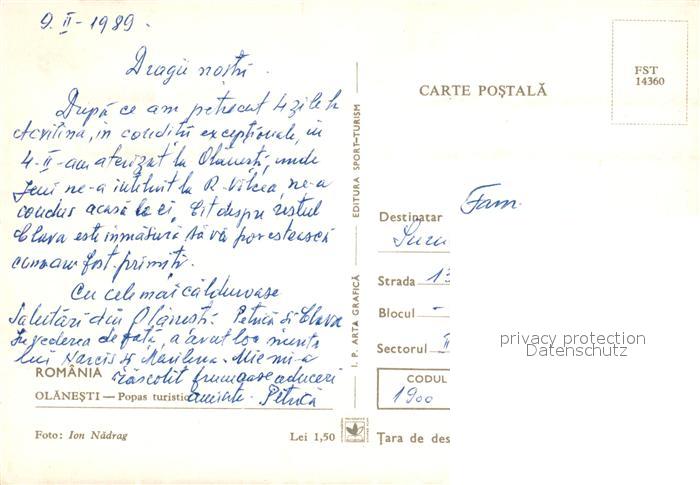 9. II - 1989.
Dragii noștri.
După ce am petrecut 4 zile la
în condiții excepționale, în
4-II-am aterizat la Olănești, unde
Jeni ne-a întîlnit la R. Vîlcea, ne-a
condus acasă la ei, Cît despre restul
Clava este în măsură să vă povestească
cum am fost primiți.
Cu cele mai călduroase
Salutări din Olănești. Petrică și Clava
de față, a avut loc nunta
lui Narcis și Marilena. Mie mi-a
răscolit frumoase aduceri
aminte. Petrică
ROMÂNIA
OLĂNEȘTI — Popas turistic
Foto: Ion Nădrag
Lei 1,50
I. P. ARTA GRAFICĂ EDITURA SPORT-TURISM
CARTE POȘTALĂ
FST
14360
Fam.
Destinatar
Strada 13
Blocul -
Sectorul II
CODUL
1900
Țara de des
privacy protection
Datenschutz